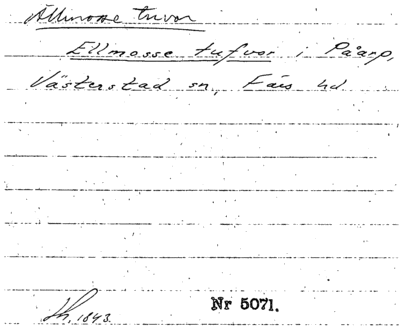 Ällmosse tuvor
Ellmosse tufvor i Påarp,
Västerstad sn, Färs hd
Lh, 1843.
Nr 5071.